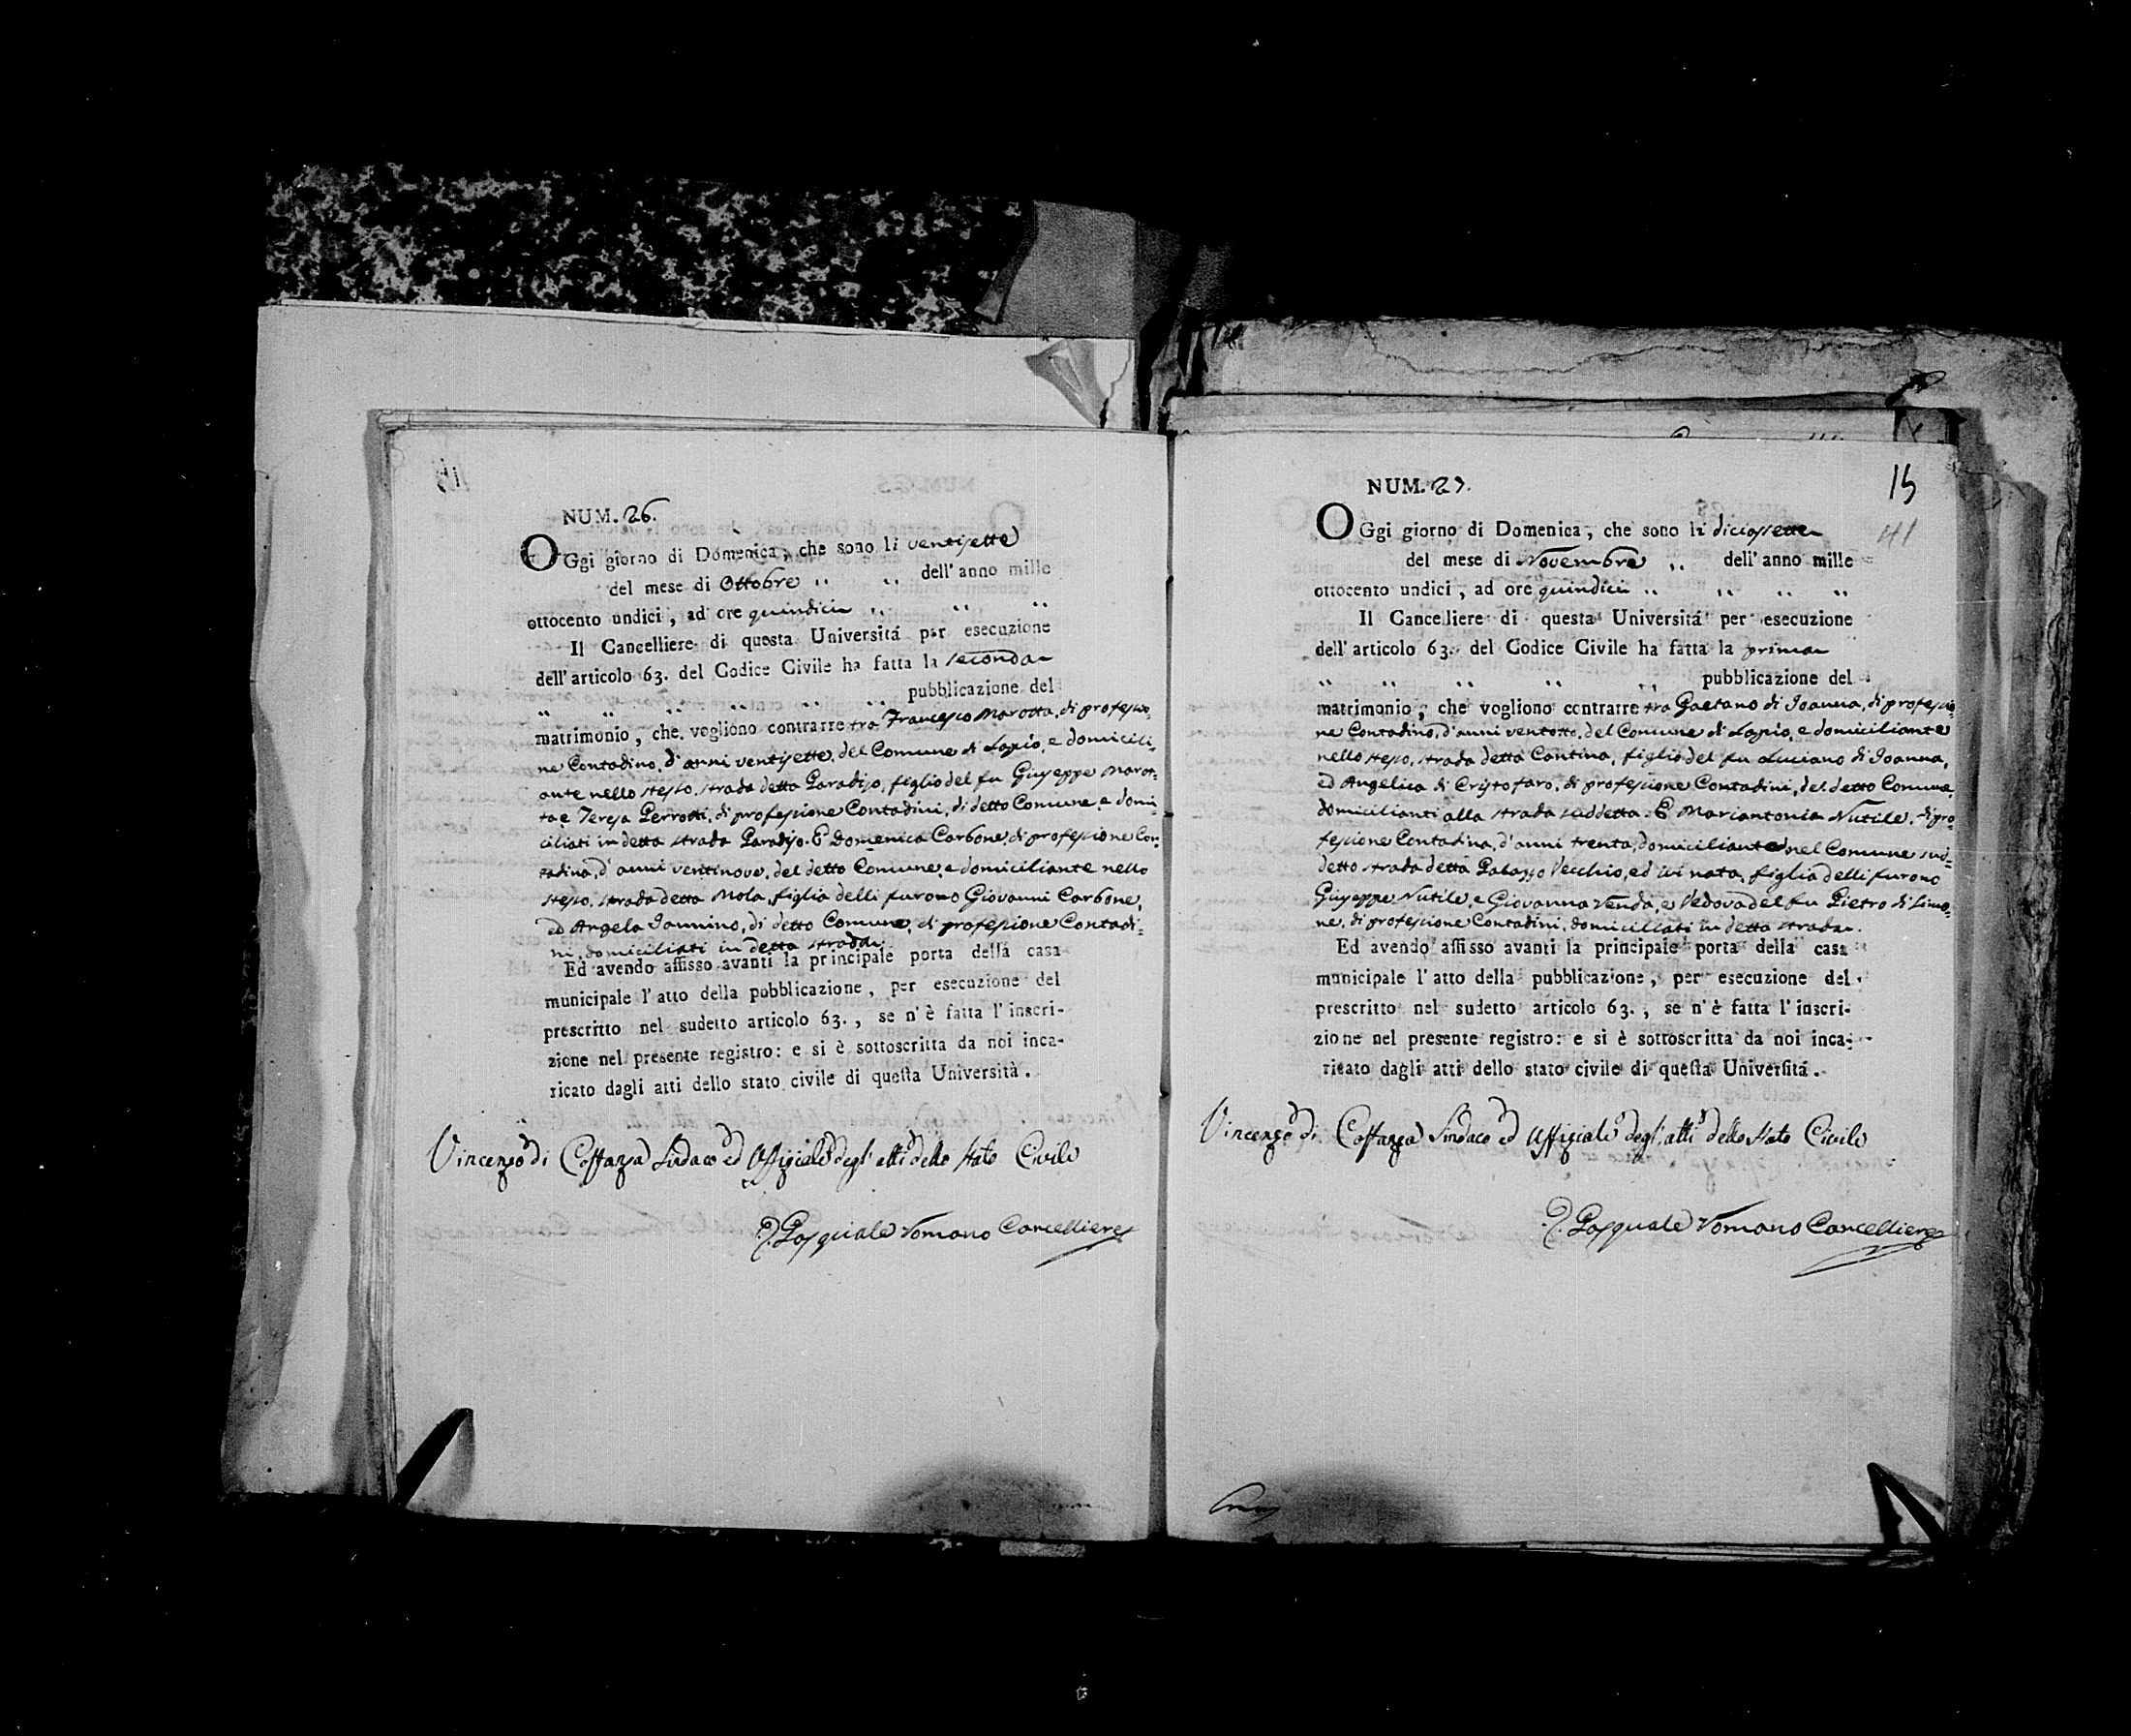 NUM. 26.
OGgi giorno di Domenica, che sono li ventisette
del mese di Ottobre ,, ,, dell'anno mille
ottocento undici, ad ore quindici ,, ,, ,,
Il Cancelliere di questa Universitá per esecuzione
dell'articolo 63. del Codice Civile ha fatta la seconda
,, ,, ,, ,, ,, ,, pubblicazione del
matrimonio, che vogliono contrarre tra Francesco Marotta, di professio-
ne Contadino, d'anni ventisette, del Comune di Lapio, e domicili-
ante nello stesso, strada detta Paradiso, figlio del fu Giuseppe Marot-
ta, e Teresa Perrotti, di professione Contadini, di detto Comune, e domi-
ciliati in detta strada Paradiso. E Domenica Carbone, di professione Con-
tadina, d'anni ventinove, del detto Comune, e domiciliante nello
stesso, strada detta Mola, figlia delli furono Giovanni Carbone,
ed Angela Iannino, di detto Comune, di professione Contadi-
ni, domiciliati in detta strada.
Ed avendo affisso avanti la principale porta della casa
municipale l'atto della pubblicazione, per esecuzione del
prescritto nel sudetto articolo 63., se n'è fatta l'inscri-
zione nel presente registro: e si è sottoscritta da noi inca-
ricato dagli atti dello stato civile di questa Università.
Vincenzo di Costanza Sindaco ed Uffiziale degl'atti dello Stato Civile
D. Pasquale Romano Cancelliere
NUM. 27.
15
OGgi giorno di Domenica, che sono li diciassette
del mese di Novembre ,, dell'anno mille
ottocento undici, ad ore quindici ,, ,, ,, ,,
Il Cancelliere di questa Universitá per esecuzione
dell'articolo 63. del Codice Civile ha fatta la prima
,, ,, ,, ,, ,, pubblicazione del
matrimonio, che vogliono contrarre tra Gaetano di Ioanna, di professio-
ne Contadino, d'anni ventotto, del Comune di Lapio, e domiciliante
nello stesso, strada detta Cantina, figlio del fu Luciano di Ioanna,
ed Angelica di Cristofaro, di professione Contadini, del detto Comune,
domicilianti alla strada suddetta. E Mariantonia Nutile, di pro-
fessione Contadina, d'anni trenta, domiciliante nel Comune sud-
detto strada detta Palazzo Vecchio, ed ivi nata, figlia delli furono
Giuseppe Nutile, e Giovanna Venda, e Vedova del fu Pietro di Limo-
ne, di professione Contadini, domiciliati in detta strada.
Ed avendo affisso avanti la principale porta della casa
municipale l'atto della pubblicazione, per esecuzione del
prescritto nel sudetto articolo 63., se n'è fatta l'inscri-
zione nel presente registro: e si è sottoscritta da noi inca-
ricato dagli atti dello stato civile di questa Universitá.
Vincenzo di Costanza Sindaco ed Uffiziale degl'atti dello Stato Civile
D. Pasquale Romano Cancelliere